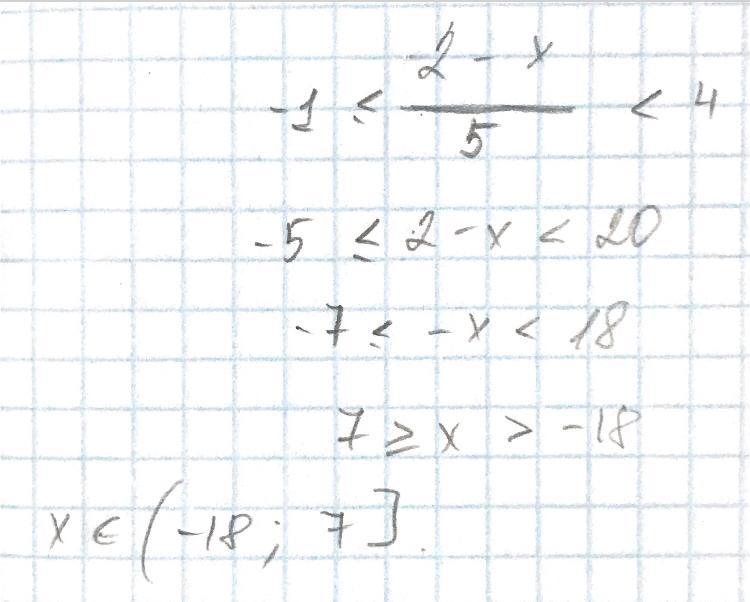 -1 ≤ (2 - x)/5 < 4
-5 ≤ 2 - x < 20
-7 ≤ -x < 18
7 ≥ x > -18
x ∈ (-18; 7].